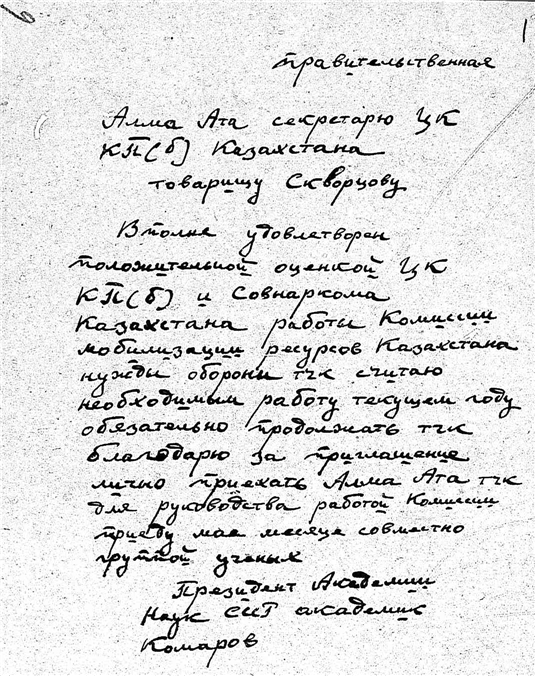 6
1
правительственная
Алма Ата секретарю ЦК
КП(б) Казахстана
товарищу Скворцову
Вполне удовлетворен
положительной оценкой ЦК
КП(б) и Совнаркома
Казахстана работы Комиссии
мобилизации ресурсов Казахстана
нужды обороны тчк считаю
необходимым работу текущем году
обязательно продолжать тчк
благодарю за приглашение
лично приехать Алма Ата тчк
для руководства работой Комиссии
приеду мае месяце совместно
группой ученых
Президент Академии
Наук СССР академик
Комаров